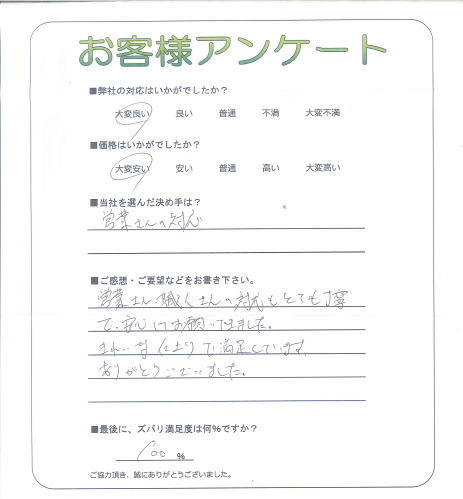 お客様アンケート
■弊社の対応はいかがでしたか？
大変良い　良い　普通　不満　大変不満
■価格はいかがでしたか？
大変安い　安い　普通　高い　大変高い
■当社を選んだ決め手は？
営業さんの対応
■ご感想・ご要望などをお書き下さい。
営業さん、職人さんの対応もとても丁寧
で、安心してお願いできました。
きれいな仕上りで満足しています。
ありがとうございました。
■最後に、ズバリ満足度は何％ですか？
100 ％
ご協力頂き、誠にありがとうございました。